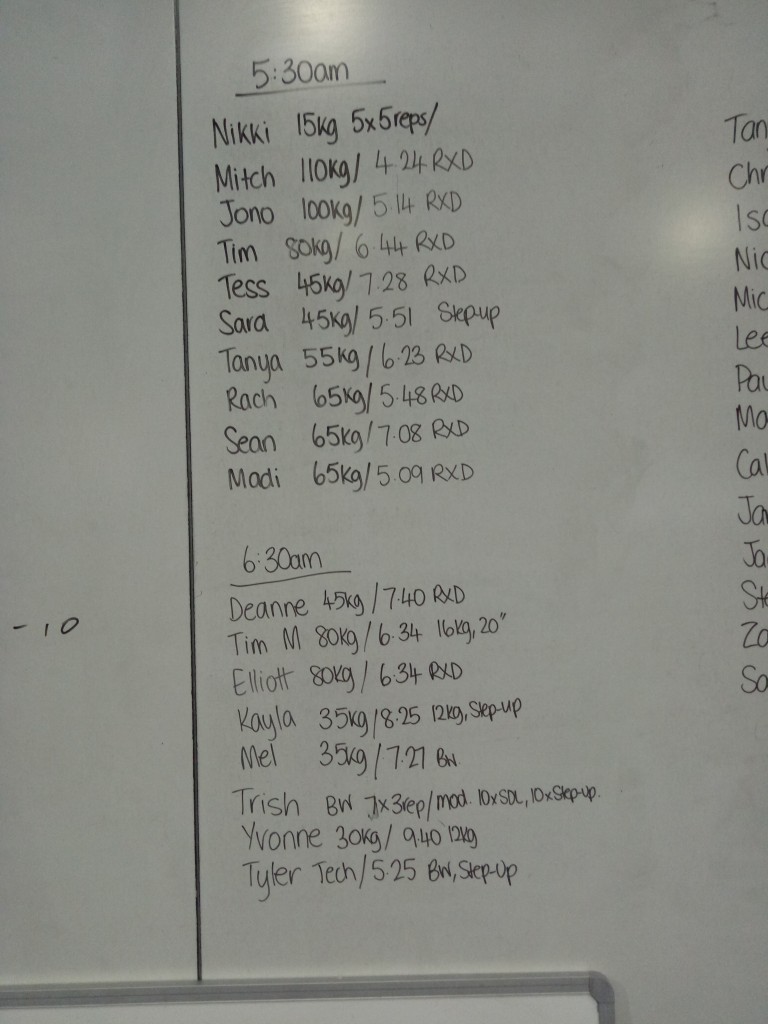 5:30am
Nikki 15kg 5x5reps/
Mitch 110kg/ 4.24 RXD
Jono 100kg/ 5.14 RXD
Tim 80kg/ 6.44 RXD
Tess 45kg/ 7.28 RXD
Sara 45kg/ 5.51 Step-up
Tanya 55kg/ 6.23 RXD
Rach 65kg/ 5.48 RXD
Sean 65kg/ 7.08 RXD
Madi 65kg/ 5.09 RXD
6:30am
Deanne 45kg/ 7.40 RXD
Tim M 80kg/ 6.34 16kg, 20"
Elliott 80kg/ 6.34 RXD
Kayla 35kg/ 8.25 12kg, Step-up
Mel 35kg/ 7.27 BW.
Trish BW 7x3rep/ mod. 10xSDL, 10xStep-up.
Yvonne 30kg/ 9.40 12kg
Tyler Tech/ 5.25 BW, Step-Up
-10
Tan
Chr
Isa
Nic
Mic
Lee
Pau
Ma
Cal
Ja
Ja
Ste
Za
Sa